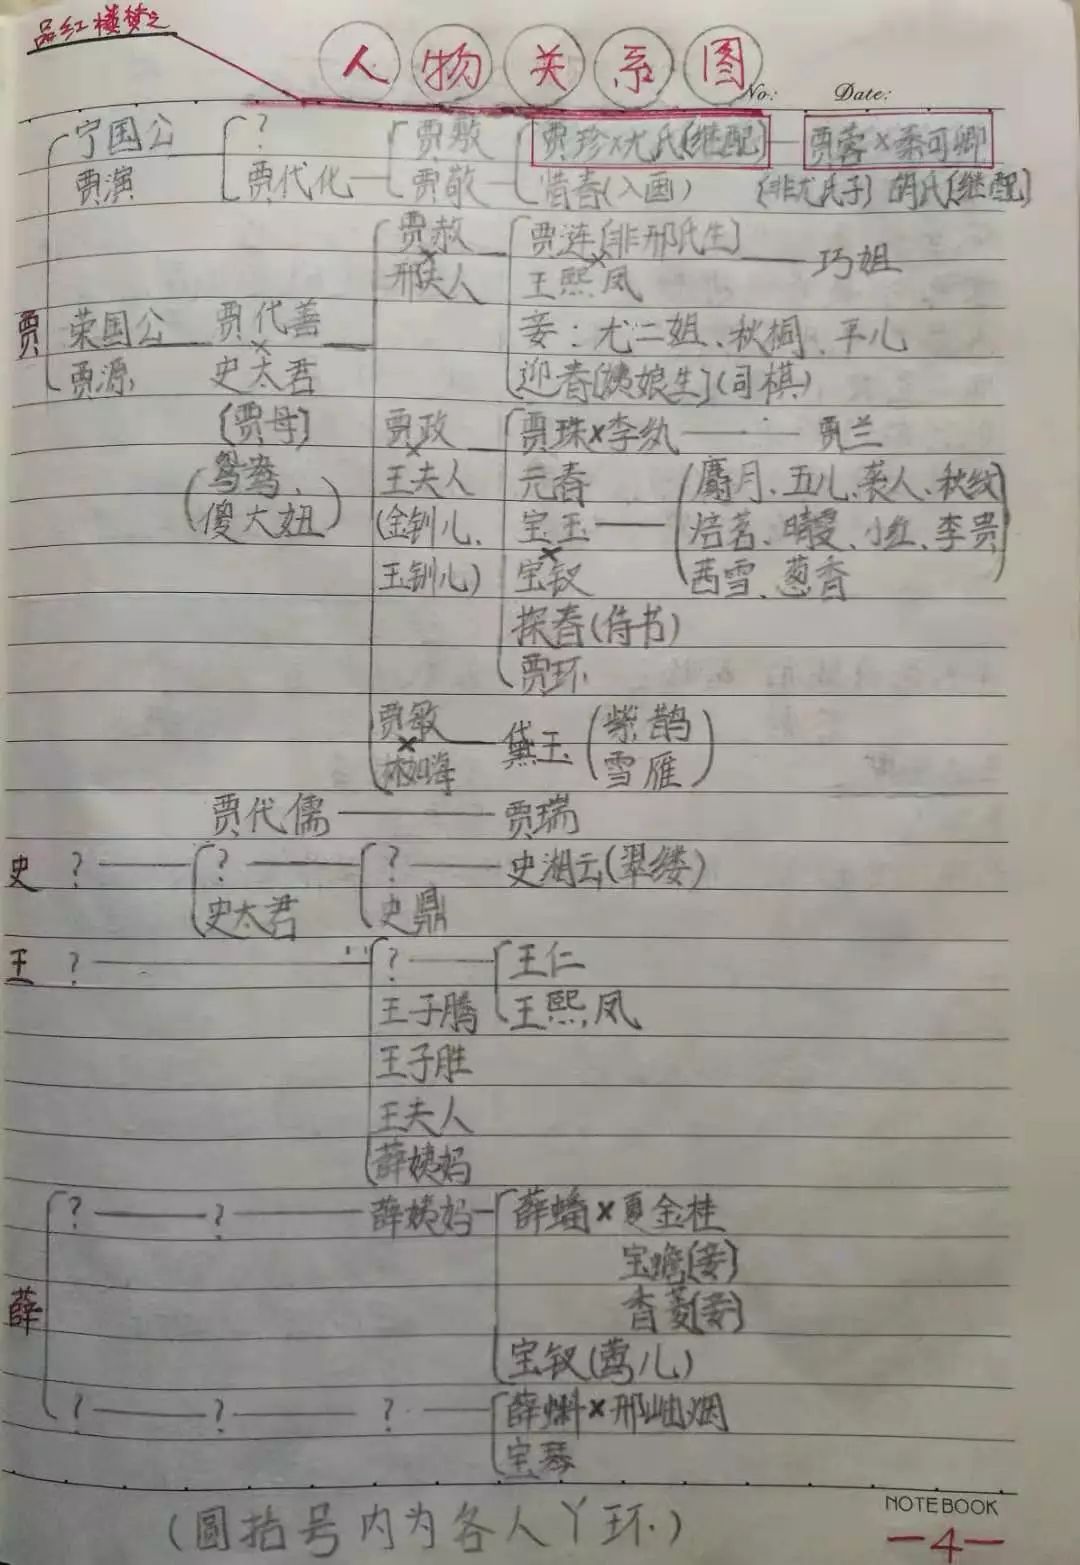 品红楼梦之
人物关系图
No: Date:
宁国公 ? 贾敷 贾珍×尤氏[继配] 贾蓉×秦可卿
贾演 贾代化 贾敬 惜春(入画) (非尤氏子) 胡氏[继配]
贾赦 贾涟[非邢氏生]
× × 巧姐
邢夫人 王熙凤
贾 荣国公 贾代善 妾:尤二姐、秋桐、平儿
×
贾源 史太君 迎春[姨娘生](司棋)
[贾母] 贾政 贾珠×李纨 贾兰
×
(鸳鸯、 王夫人 元春 (麝月、五儿、袭人、秋纹
傻大妞) (金钏儿、 宝玉 焙茗、晴雯、小红、李贵
×
玉钏儿) 宝钗 茜雪、葱香)
探春(侍书)
贾环
贾敏 黛玉 (紫鹃
×
林如海 雪雁)
贾代儒 贾瑞
史 ? ? ? 史湘云(翠缕)
史太君 史鼎
王 ? ? 王仁
王子腾 王熙凤
王子胜
王夫人
薛姨妈
? ? 薛姨妈 薛蟠×夏金桂
宝蟾[妾]
薛 香菱[妾]
宝钗(莺儿)
? ? ? 薛蝌×邢岫烟
宝琴
NOTEBOOK
(圆括号内为各人丫环)
—4—